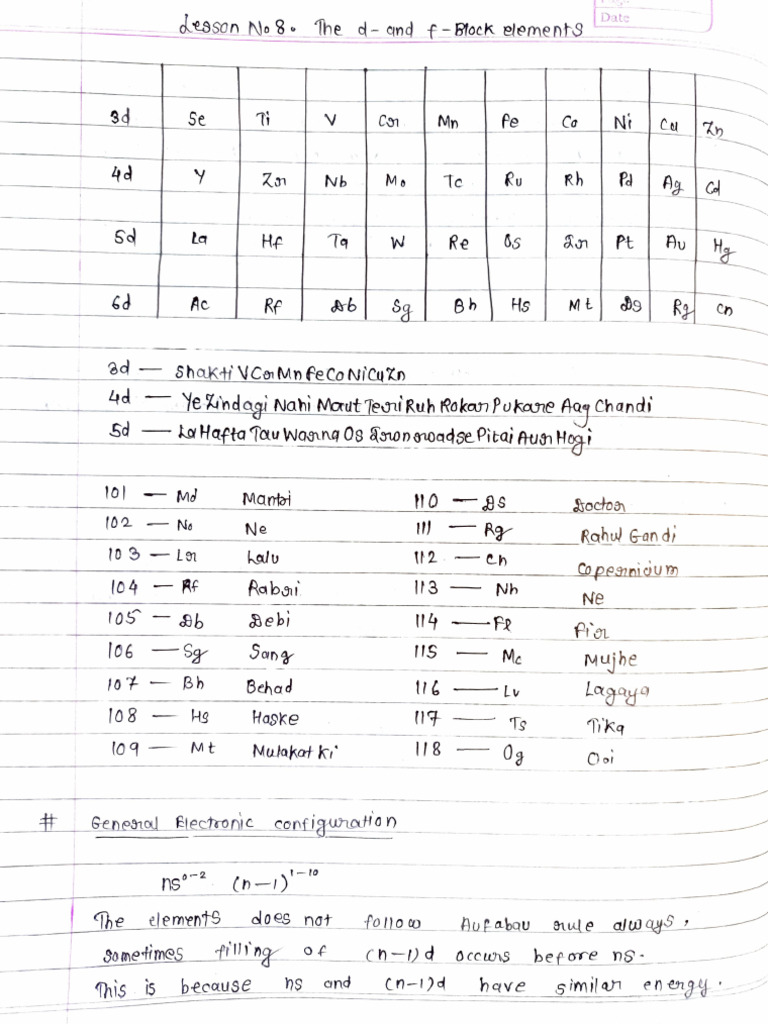 Date
Lesson No 8. The d- and f-Block elements
3d Se Ti V Cr Mn Fe Co Ni Cu Zn
4d Y Zr Nb Mo Tc Ru Rh Pd Ag Cd
5d La Hf Ta W Re Os Ir Pt Au Hg
6d Ac Rf Db Sg Bh Hs Mt Ds Rg Cn
3d — Shakti V Cr Mn Fe Co Ni Cu Zn
4d — Ye Zindagi Nahi Maut Teri Ruh Rokar Pukare Aag Chandi
5d — La Hafta Tau Warna Os Ironroadse Pitai Aur Hogi
101 — Md Mantri 110 — Ds Doctor
102 — No Ne 111 — Rg Rahul Gandi
103 — Lr Lalu 112 — Cn Copernicium
104 — Rf Rabri 113 — Nh Ne
105 — Db Debi 114 — Fl Fir
106 — Sg Sang 115 — Mc Mujhe
107 — Bh Behad 116 — Lv Lagaya
108 — Hs Haske 117 — Ts Tika
109 — Mt Mulakat ki 118 — Og
# General Electronic configuration
ns⁰⁻² (n-1)¹⁻¹⁰
The elements does not follow Aufabau rule always,
sometimes filling of (n-1)d occurs before ns.
This is because ns and (n-1)d have similar energy.